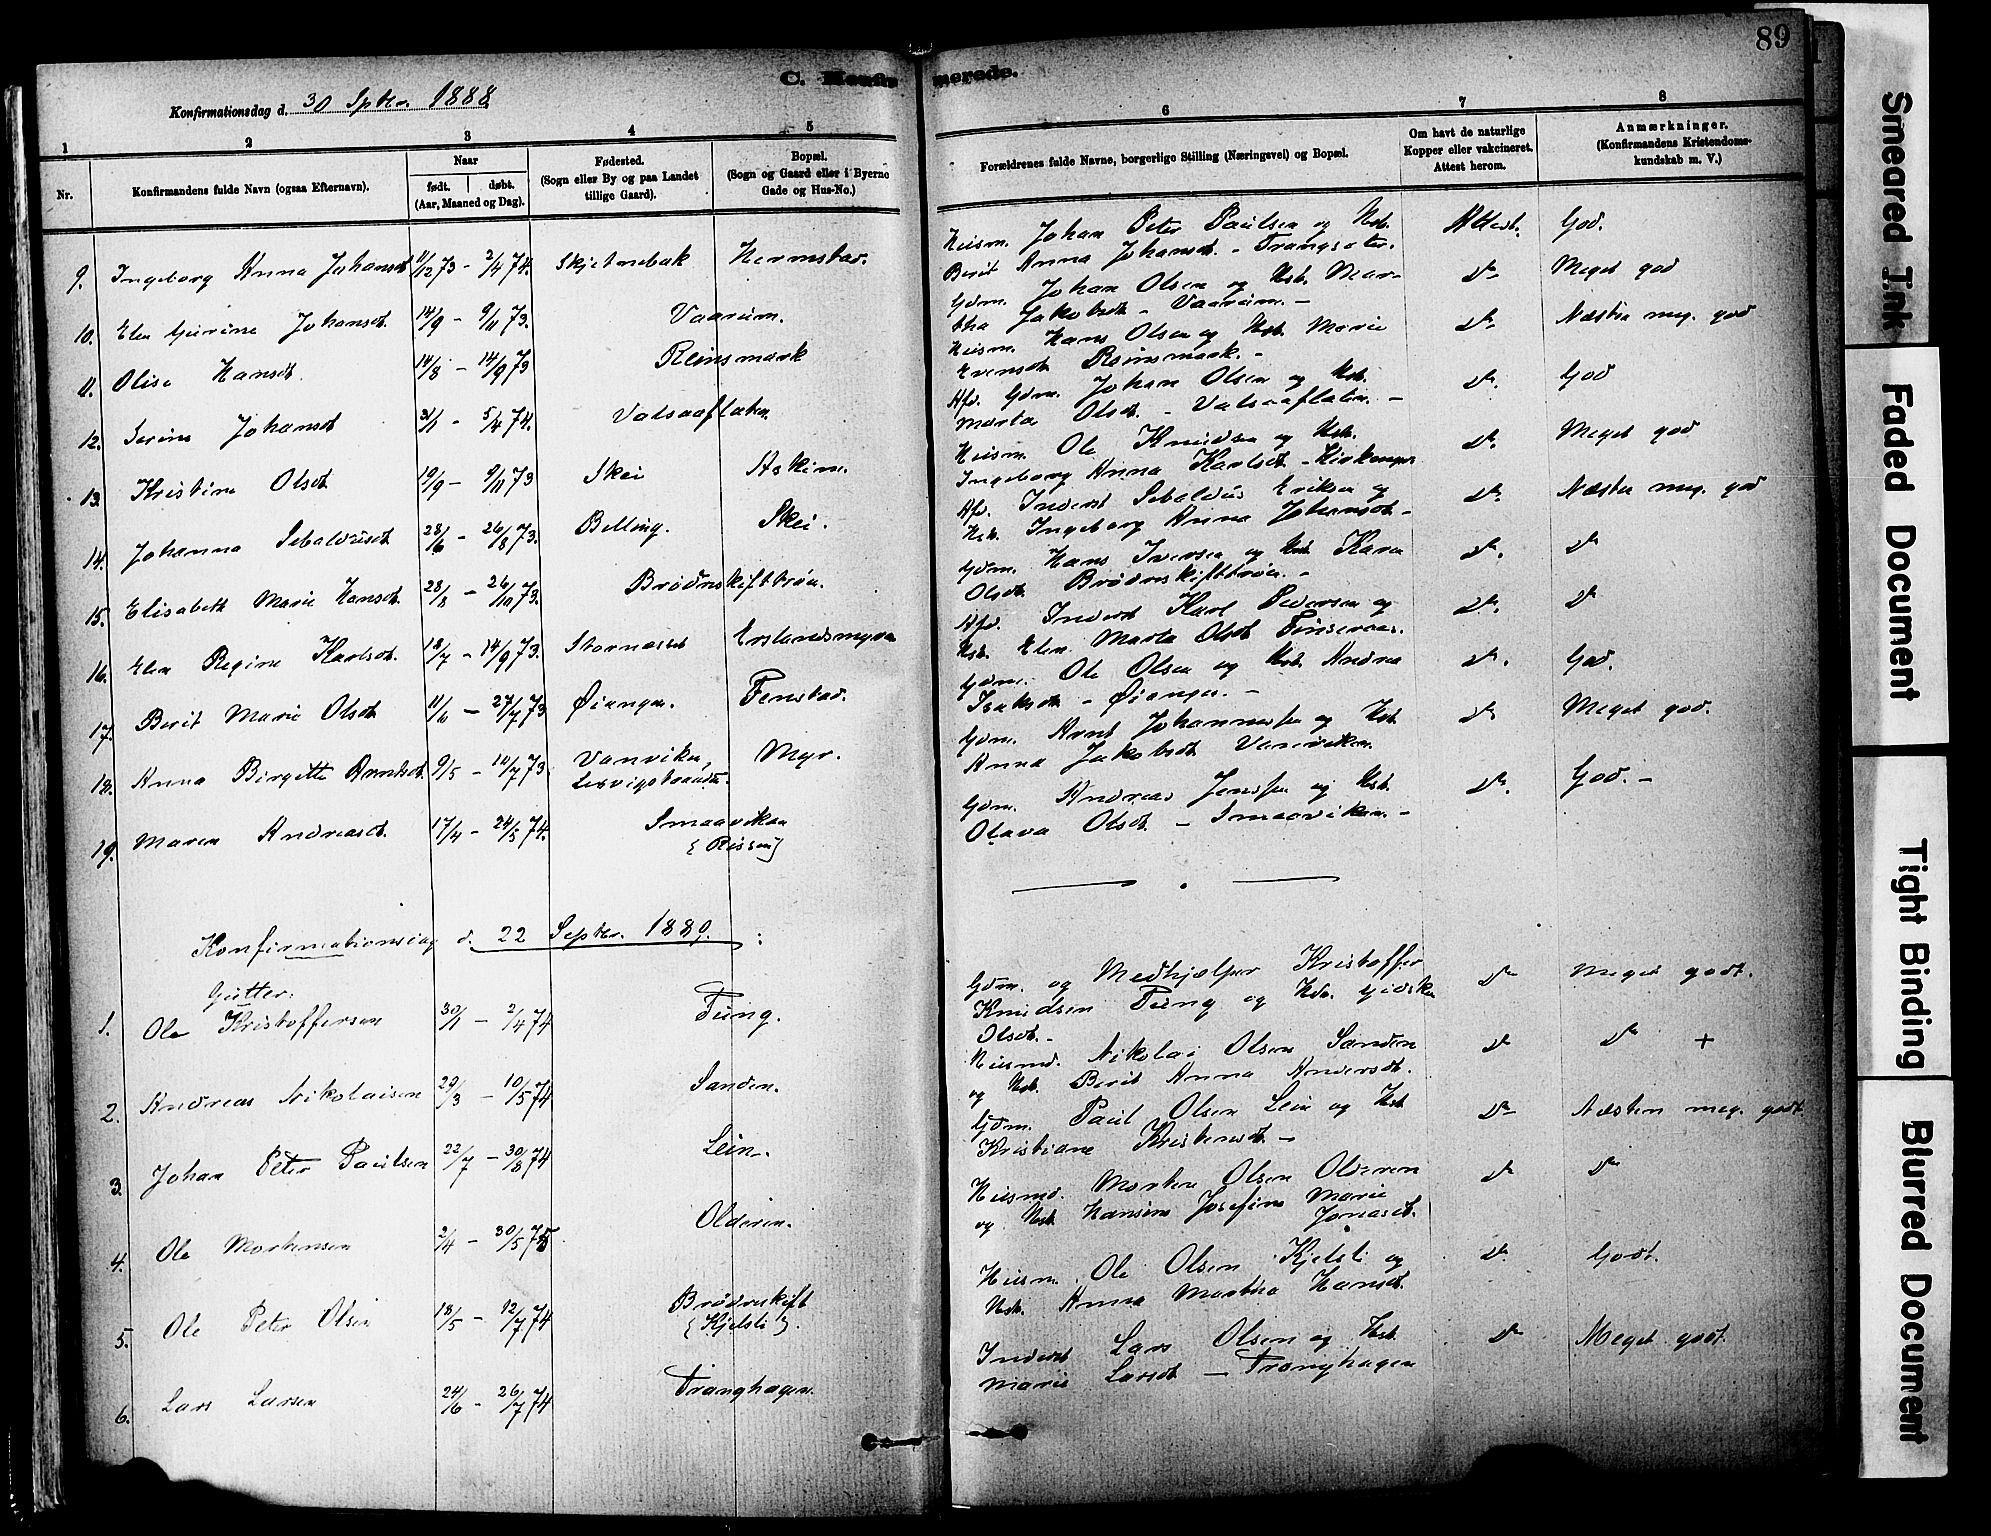 89
C. Konfir merede.
Konfirmationsdag d. 30 Septbr. 1888
1 2 3 4 5 6 7 8
Nr.
Konfirmandens fulde Navn (ogsaa Efternavn).
Naar
født. døbt.
(Aar, Maaned og Dag).
Fødested.
(Sogn eller By og paa Landet
tillige Gaard).
Bopæl.
(Sogn og Gaard eller i Byerne
Gade og Hus-No.)
Forældrenes fulde Navne, borgerlige Stilling (Næringsvei) og Bopæl.
Om havt de naturlige
Kopper eller vakcineret.
Attest herom.
Anmærkninger.
(Konfirmandens Kristendoms-
kundskab m. V.)
9. Ingeborg Anna Johansdt. 11/12 73 - 2/4 74. Skjetnebak Hermstad.
Husm. Johan Peter Paulsen og Hst.
Berit Anna Johansdt. - Trangsæter. Attest. God.
10. Elen Gurine Johansdt. 14/9 - 9/11 73. Vaarum.
Gdm. Johan Olsen og Hst. Mar-
tha Jakobsdt. - Vaarum. - Do Meget god
11. Olise Hansdt. 14/8 - 14/9 73 Reinsmark
Husm. Hans Olsen og Hst. Marie
Evensdt. Reinsmark. - Do Næsten meg. god
12. Serine Johansdt 31/1 - 5/4 74. Valsaaflaten
Afd. Gdm. Johan Olsen og Hst.
Marta Olsdt. - Valsaaflaten. - Do God
13. Kristine Olsdt 19/9 - 9/11 73 Skei Askim.
Husm. Ole Knudsen og Hst.
Ingeborg Anna Karlsdt - Do Meget god
14. Johanna Sebaldusdt 28/6 - 26/8 73. Belling. Skei.
Afd. Inderst Sebaldus Eriksen og
Hst. Ingeborg Anna Johansdt. - Do Næsten meg. god
15. Elisabeth Marie Hansdt. 28/8 - 26/10 73. Brødreskifttrøen.
Gdm. Hans Iversen og Hst. Karen
Olsdt. Brødreskifttrøen. - Do Do
16. Elen Regine Karlsdt. 18/7 - 14/9 73. Stornesset Erslandsmyren
Afd. Inderst Karl Pedersen og
Hst. Elen Marta Olsdt Do Do
17. Berit Marie Olsdt 11/6 - 27/7 73 Øiangen. Fenstad.
Gdm. Ole Olsen og Hst. Andrea
Isaksdt. - Øiangen. - Do God.
18. Anna Birgitte Arntsdt. 9/5 - 10/7 73. Vanviken, Myr.
Gdm. Arnt Johannessen og Hst.
Anna Jakobsdt. Vanviken. Do Meget god.
19. Maren Andreasdt. 17/4 - 24/5 74. Smaaviken
{Rissen}
Gdm. Andreas Jenssen og Hst.
Olava Olsdt. - Smaaviken. - Do God. -
Konfirmationsdag d. 22 Septbr. 1889. :
Gutter:
1. Ole Kristoffersen 30/1 - 2/4 74 Tung.
Gdm. og Medhjælper Kristoffer
Knudsen Tung og Hst. Gidsken
Olsdt. - Do Meget godt.
2. Andreas Nikolaisen 29/3 - 10/5 74 Sanden.
Husmd. Nikolai Olsen Sanden
og Hst. Berit Anna Andersdt. Do Do +
3. Johan Peter Paulsen 22/7 - 30/8 74 Lein.
Gdm. Paul Olsen Lein og Hst
Kristiane Kristensdt. - Do Næsten meg. godt.
4. Ole Mortensen 2/4 - 30/5 74 Olderen.
Husmd. Morten Olsen Olderen
og Hst. Hansine Josefine Marie
Jonasdt. Do Do
5. Ole Peter Olsen 18/5 - 12/7 74 Brødreskift
{Kjelsli}.
Husm. Ole Olsen Kjelsli og
Hst. Anna Martha Hansdt. Do Godt.
6. Lars Larsen 24/6 - 26/7 74 Tranghagen.
Inderst Lars Olsen og Hst.
Marie Larsdt - Tranghagen Do Meget godt.
Smeared Ink
Faded Document
Tight Binding
Blurred Document